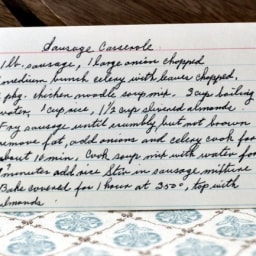 Sausage Casserole
1 lb. sausage, 1 large onion chopped
medium bunch celery with leaves chopped,
pkg. chicken noodle soup mix. 3 cup boiling
water, 1 cup rice, 1/2 cup slivered almonds
Fry sausage until crumbly, but not brown
remove fat, add onions and celery cook for
about 10 min. Cook soup mix with water for
minutes add rice Stir in sausage mixture
Bake covered for 1 hour at 350°, top with
almonds